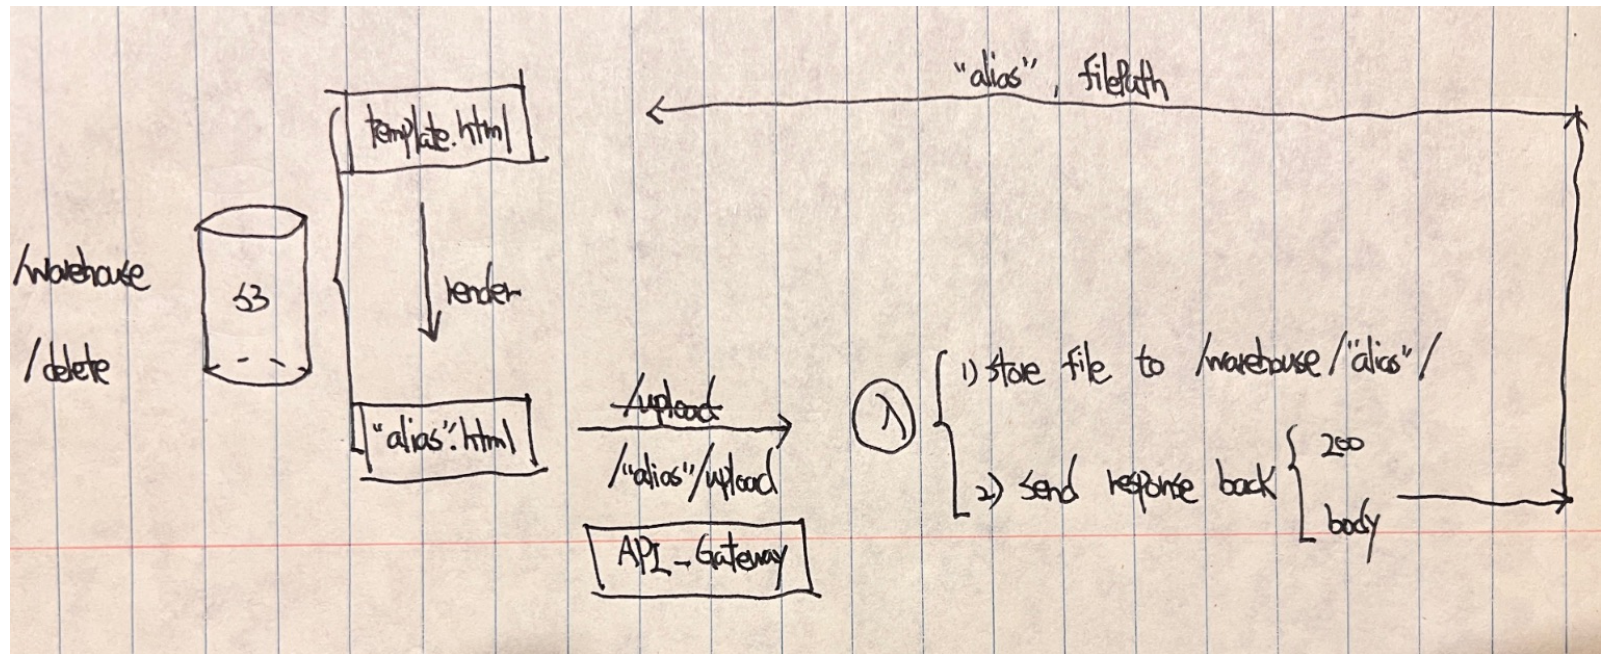 "alias", filePath
template.html
/warehouse
S3
render
/delete
"alias".html
/upload
/"alias"/upload
API_Gateway
λ
1) store file to /warehouse/"alias"/
2) send response back
200
body